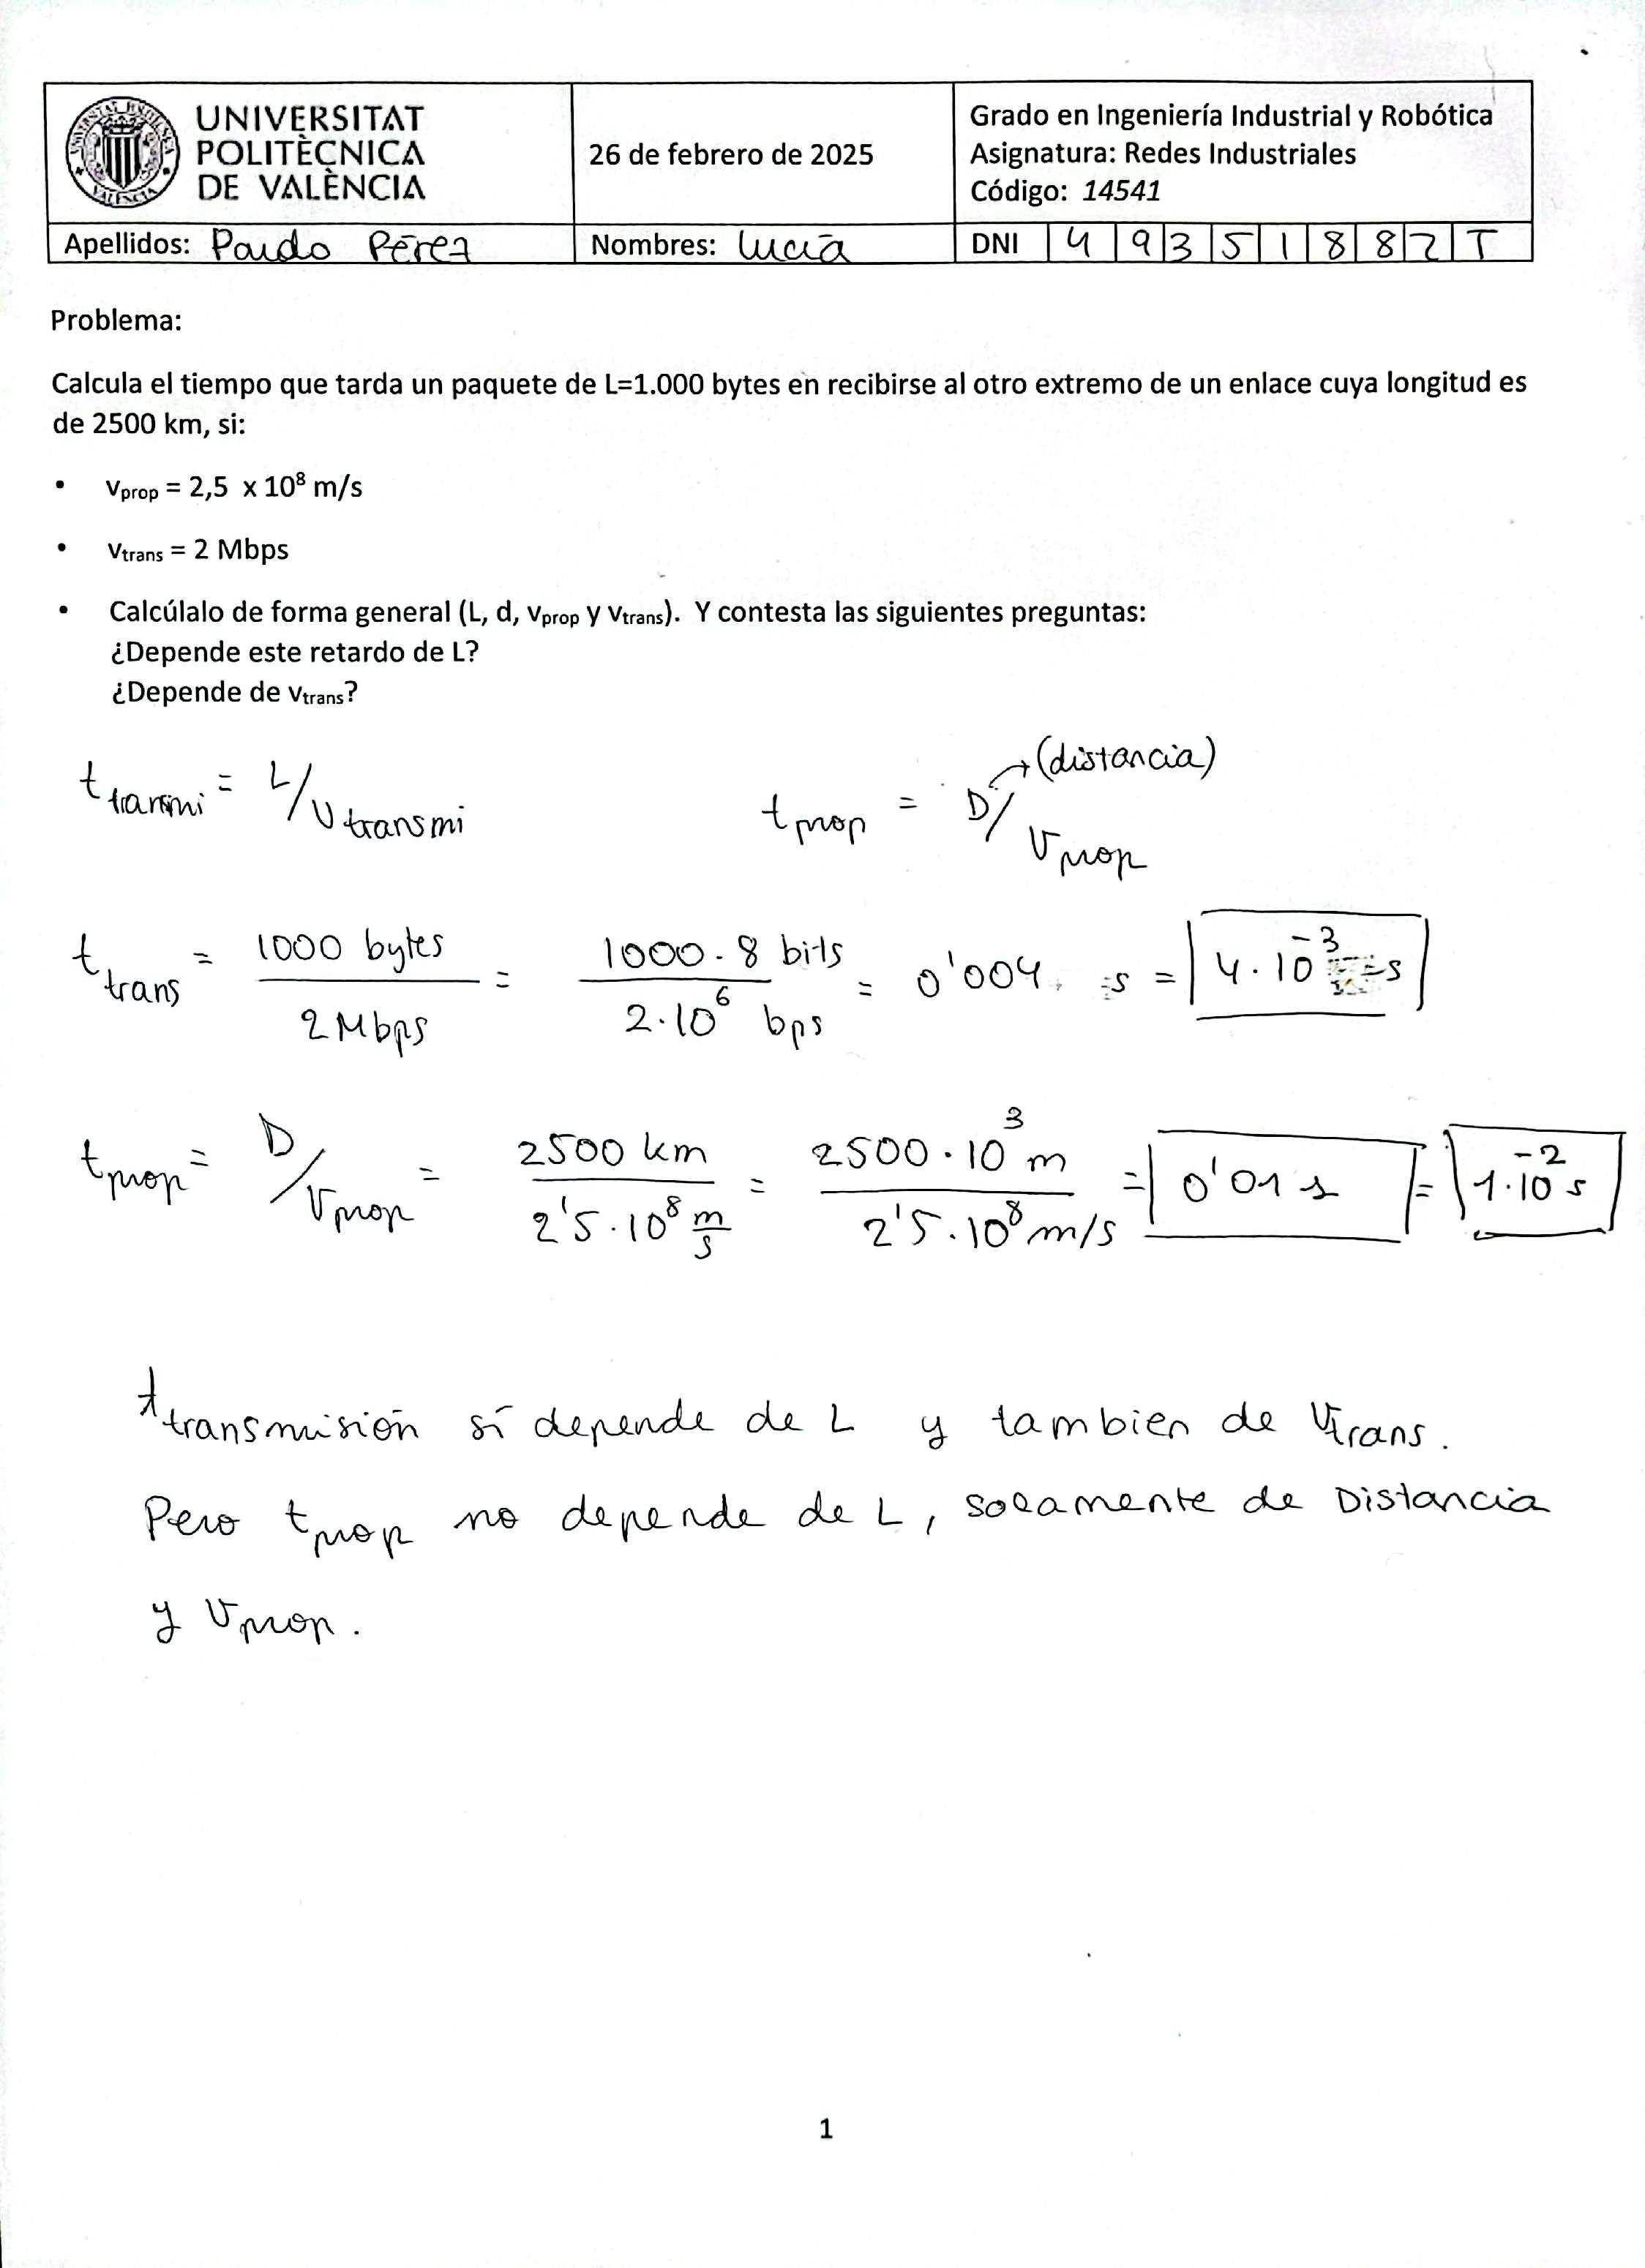 UNIVERSITAT
POLITÈCNICA
DE VALÈNCIA
26 de febrero de 2025
Grado en Ingeniería Industrial y Robótica
Asignatura: Redes Industriales
Código: 14541
Apellidos: Pardo Pérez
Nombres: Lucía
DNI 4 9 3 5 1 8 8 2 T
Problema:
Calcula el tiempo que tarda un paquete de L=1.000 bytes en recibirse al otro extremo de un enlace cuya longitud es
de 2500 km, si:
• vprop = 2,5 x 10⁸ m/s
• vtrans = 2 Mbps
• Calcúlalo de forma general (L, d, vprop y vtrans). Y contesta las siguientes preguntas:
¿Depende este retardo de L?
¿Depende de vtrans?
t tansmi = L/v transmi
t prop = D/v prop (distancia)
t trans = 1000 bytes / 2 Mbps = 1000 · 8 bits / 2·10⁶ bps = 0'004 s = 4·10⁻³ s
t prop = D/v prop = 2500 km / 2'5·10⁸ m/s = 2500·10³ m / 2'5·10⁸ m/s = 0'01 s = 1·10⁻² s
t transmisión sí depende de L y tambien de vtrans.
Pero t prop no depende de L, solamente de Distancia
y v prop.
1